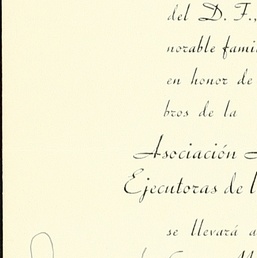 del D. F.,
norable fami
en honor de
bros de la
Asociación
Ejecutoras de l
se llevará a